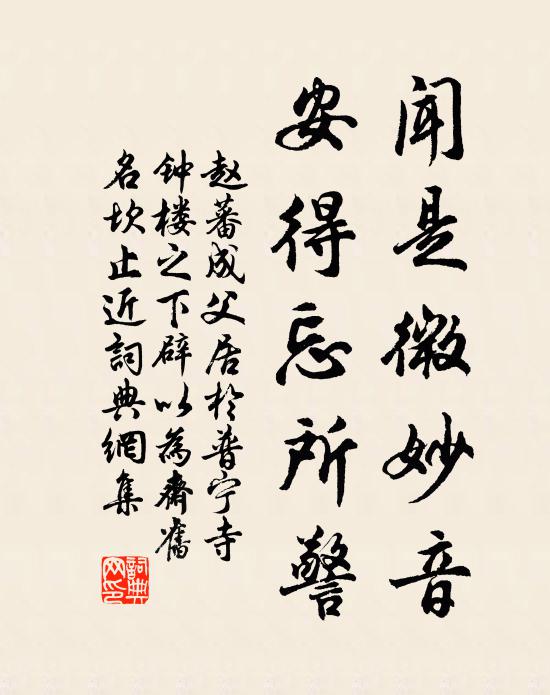 闻是微妙音
安得忘所警
赵蕃成父居於普宁寺
钟楼之下辟以為斋旧
名坎止近詞典網集
詞典网印